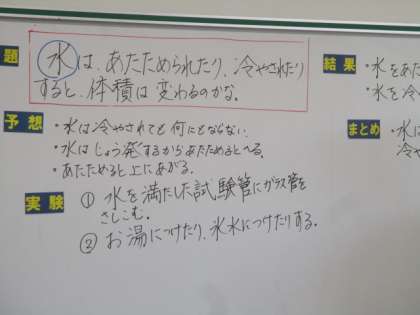 題
水は、あたためられたり、冷やされたり
すると、体積は変わるのかな。
予想
・水は冷やされても何にもならない。
・水はじょう発するからあたためるとへる。
・あたためると上にあがる。
実験
① 水を満たした試験管にガラス管を
さしこむ。
② お湯につけたり、氷水につけたりする。
結果
・水をあた
・水を冷
まとめ
水は
冷や